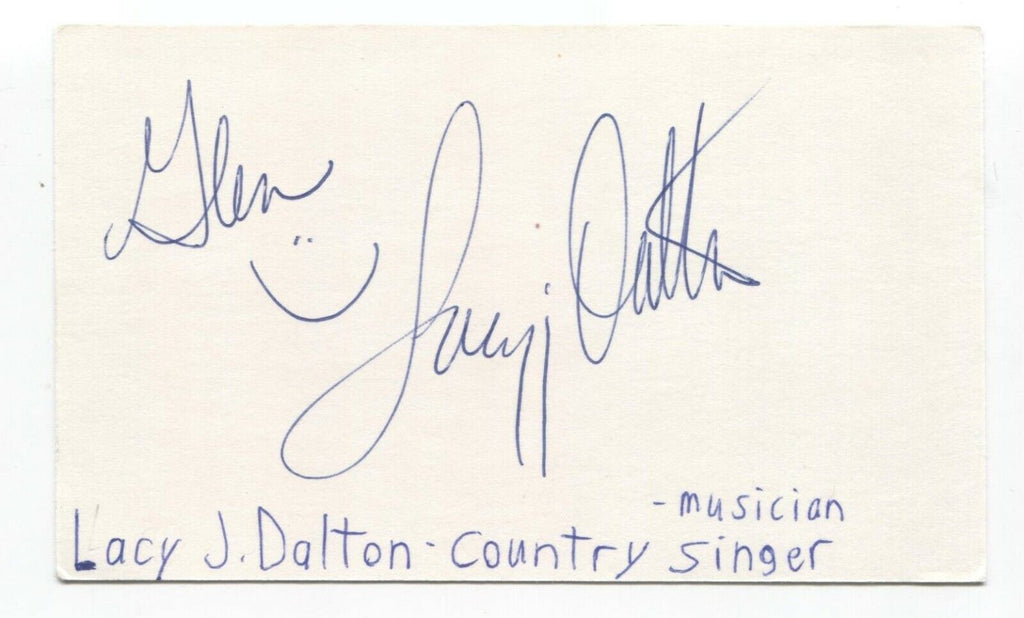 Glen
Lacy J Dalton
- musician
Lacy J. Dalton - Country singer